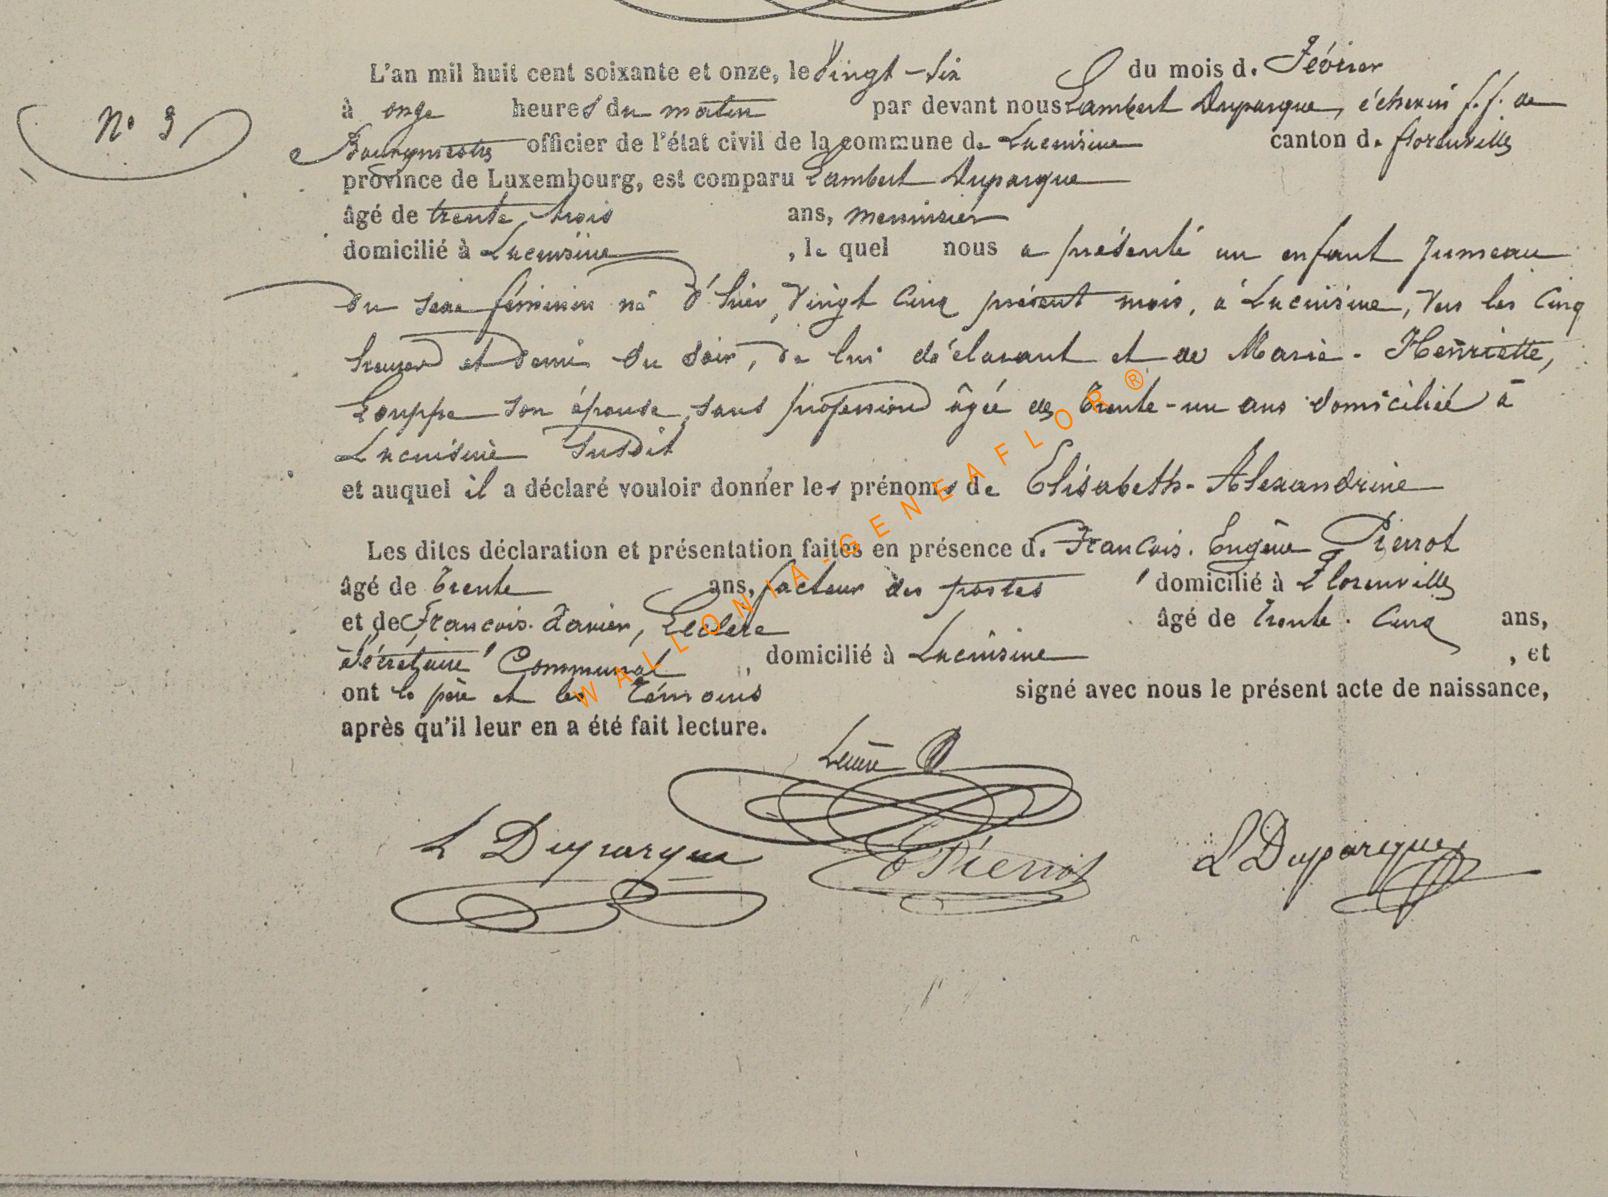 L'an mil huit cent soixante et onze, le Vingt-six du mois d. Février
N° 3
à onze heures du matin par devant nous Lambert Duparque, échevin f.f. de
Bourgmestre officier de l'état civil de la commune de Lacuisine canton d. florenville
province de Luxembourg, est comparu Lambert Duparque
âgé de trente, trois ans, menuisier
domicilié à Lacuisine , le quel nous a présenté un enfant Jumeau
du sexe féminin né d'hier, Vingt Cinq présent mois, à Lacuisine, Vers les Cinq
heures et demi du Soir, de lui déclarant et de Marie-Henriette,
Gouppe son épouse, sans profession âgée de Trente-un ans domicilié à
Lacuisine Susdit
et auquel il a déclaré vouloir donner les prénoms de Elisabeth-Alexandrine
Les dites déclaration et présentation faites en présence d. François. Eugène Pierrot
âgé de Trente ans, facteur des postes domicilié à Florenville
et de François-Xavier, Leclere âgé de Trente-Cinq ans,
Sécrétaire Communal , domicilié à Lacuisine , et
ont le père et les Témoins signé avec nous le présent acte de naissance,
après qu'il leur en a été fait lecture.
L Duparque E Pierrot L Duparque
WALLONIA-GENEAFLOR ®